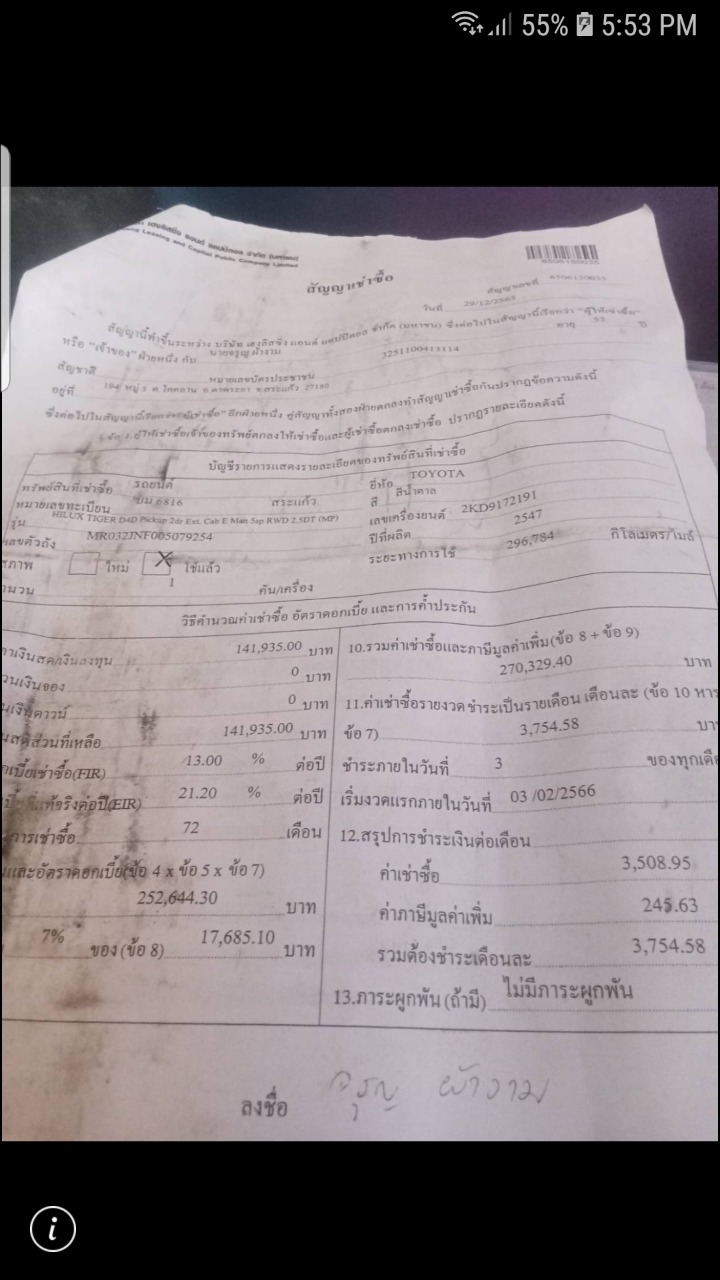 55% 5:53 PM
เฮงลิสซิ่ง แอนด์ แคปปิตอล จำกัด (มหาชน)
Leasing and Capital Public Company Limited
6506130035
สัญญาเช่าซื้อ
สัญญาเลขที่ 6506130035
วันที่ 29/12/2565
สัญญานี้ทำขึ้นระหว่าง บริษัท เฮงลิสซิ่ง แอนด์ แคปปิตอล จำกัด (มหาชน) ซึ่งต่อไปในสัญญานี้เรียกว่า "ผู้ให้เช่าซื้อ"
หรือ "เจ้าของ" ฝ่ายหนึ่ง กับ นายจรูญ ผ้างาม อายุ 53 ปี
สัญชาติ หมายเลขบัตรประชาชน 3251100413114
อยู่ที่ 194 หมู่ 5 ต.โคคลาน อ.ตาพระยา จ.สระแก้ว 27180
ซึ่งต่อไปในสัญญานี้เรียกว่า "ผู้เช่าซื้อ" อีกฝ่ายหนึ่ง คู่สัญญาทั้งสองฝ่ายตกลงทำสัญญาเช่าซื้อกันปรากฏข้อความดังนี้
ผู้ให้เช่าซื้อเจ้าของทรัพย์ตกลงให้เช่าซื้อและผู้เช่าซื้อตกลงเช่าซื้อ ปรากฏรายละเอียดดังนี้
บัญชีรายการแสดงรายละเอียดของทรัพย์สินที่เช่าซื้อ
ทรัพย์สินที่เช่าซื้อ รถยนต์ ยี่ห้อ TOYOTA
หมายเลขทะเบียน บม 6816 สระแก้ว สี สีน้ำตาล
รุ่น HILUX TIGER D4D Pickup 2dr Ext. Cab E Man 5sp RWD 2.5DT (MP) เลขเครื่องยนต์ 2KD9172191
เลขตัวถัง MR032JNF005079254 ปีที่ผลิต 2547
สภาพ ใหม่ X ใช้แล้ว ระยะทางการใช้ 296,784 กิโลเมตร/ไมล์
จำนวน 1 คัน/เครื่อง
วิธีคำนวณค่าเช่าซื้อ อัตราดอกเบี้ย และการค้ำประกัน
คาเงินสด/เงินลงทุน 141,935.00 บาท
วนเงินจอง 0 บาท
นเงินดาวน์ 0 บาท
นสดส่วนที่เหลือ 141,935.00 บาท
กเบี้ยเช่าซื้อ(FIR) 13.00 % ต่อปี
แท้จริงต่อปี(EIR) 21.20 % ต่อปี
การเช่าซื้อ 72 เดือน
และอัตราดอกเบี้ย(ข้อ 4 x ข้อ 5 x ข้อ 7)
252,644.30 บาท
7% ของ (ข้อ 8) 17,685.10 บาท
10.รวมค่าเช่าซื้อและภาษีมูลค่าเพิ่ม(ข้อ 8 + ข้อ 9)
270,329.40 บาท
11.ค่าเช่าซื้อรายงวด ชำระเป็นรายเดือน เดือนละ (ข้อ 10 หาร
ข้อ 7) 3,754.58 บา
ชำระภายในวันที่ 3 ของทุกเดื
เริ่มงวดแรกภายในวันที่ 03 /02/2566
12.สรุปการชำระเงินต่อเดือน
ค่าเช่าซื้อ 3,508.95
ค่าภาษีมูลค่าเพิ่ม 245.63
รวมต้องชำระเดือนละ 3,754.58
13.ภาระผูกพัน (ถ้ามี) ไม่มีภาระผูกพัน
ลงชื่อ จรูญ ผ้างาม